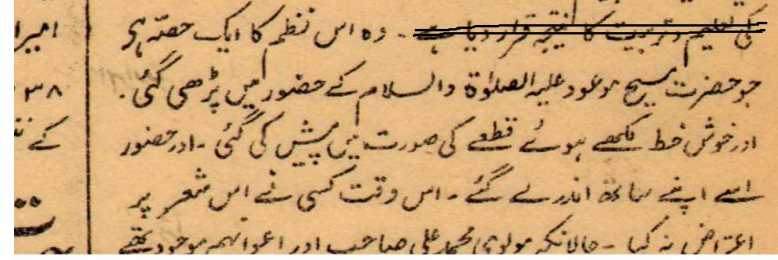 کی تعلیم و تربیت کا نتیجہ قرار دیا ہے ۔ وہ اس نظم کا ایک حصہ ہے
جو حضرت مسیح موعود علیہ الصلوٰۃ والسلام کے حضور میں پڑھی گئی ۔
اور خوش خط لکھے ہوئے قطعے کی صورت میں پیش کی گئی ۔ اور حضور
اسے اپنے ساتھ اندر لے گئے ۔ اس وقت کسی نے اس شعر پر
اعتراض نہ کیا ۔ حالانکہ مولوی محمد علی صاحب اور اعوانہم موجود تھے
امیرا
۳۸
کے